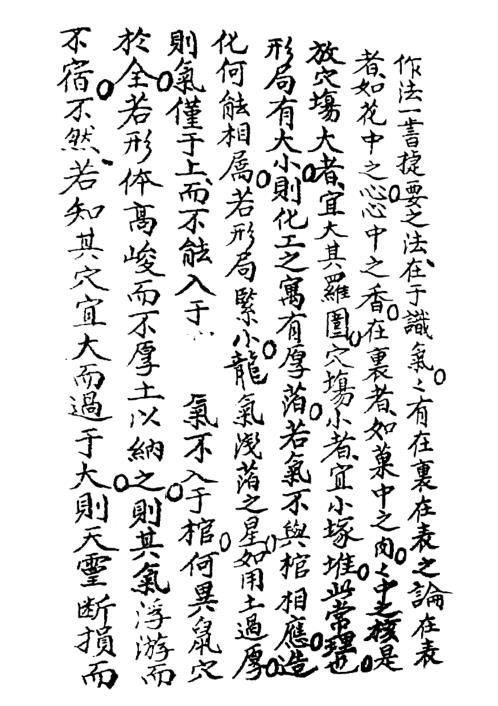 作法一書捷要之法、在于識氣。々有在裏在表之論在表
者、如花中之心。心中之香。在裏者、如菓中之肉。々中之核。是
放穴塲大者、宜大其羅圍。穴塲小者、宜小塚堆。此常理也。
形局有大小、則化工之寓有厚薄。若氣不與棺相應。造
化何能相屬。若形局緊小。龍氣淺薄之星。如用土過厚。
則氣僅于上、而不能入于 氣不入于棺。何異鼠穴
於全。若形体高峻而不厚土以納之。則其氣浮游而
不宿。不然、若知其穴宜大而過于大則天靈断損而